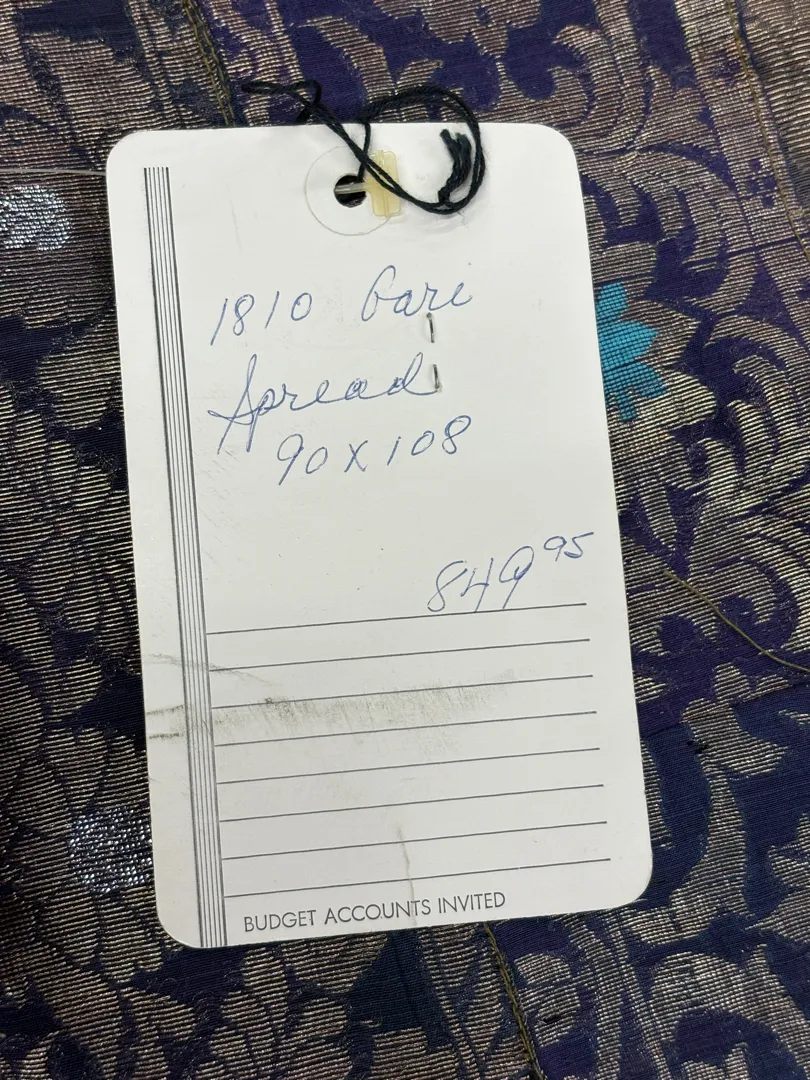 1810 Pari
Spread
90 X 108
849 95
BUDGET ACCOUNTS INVITED